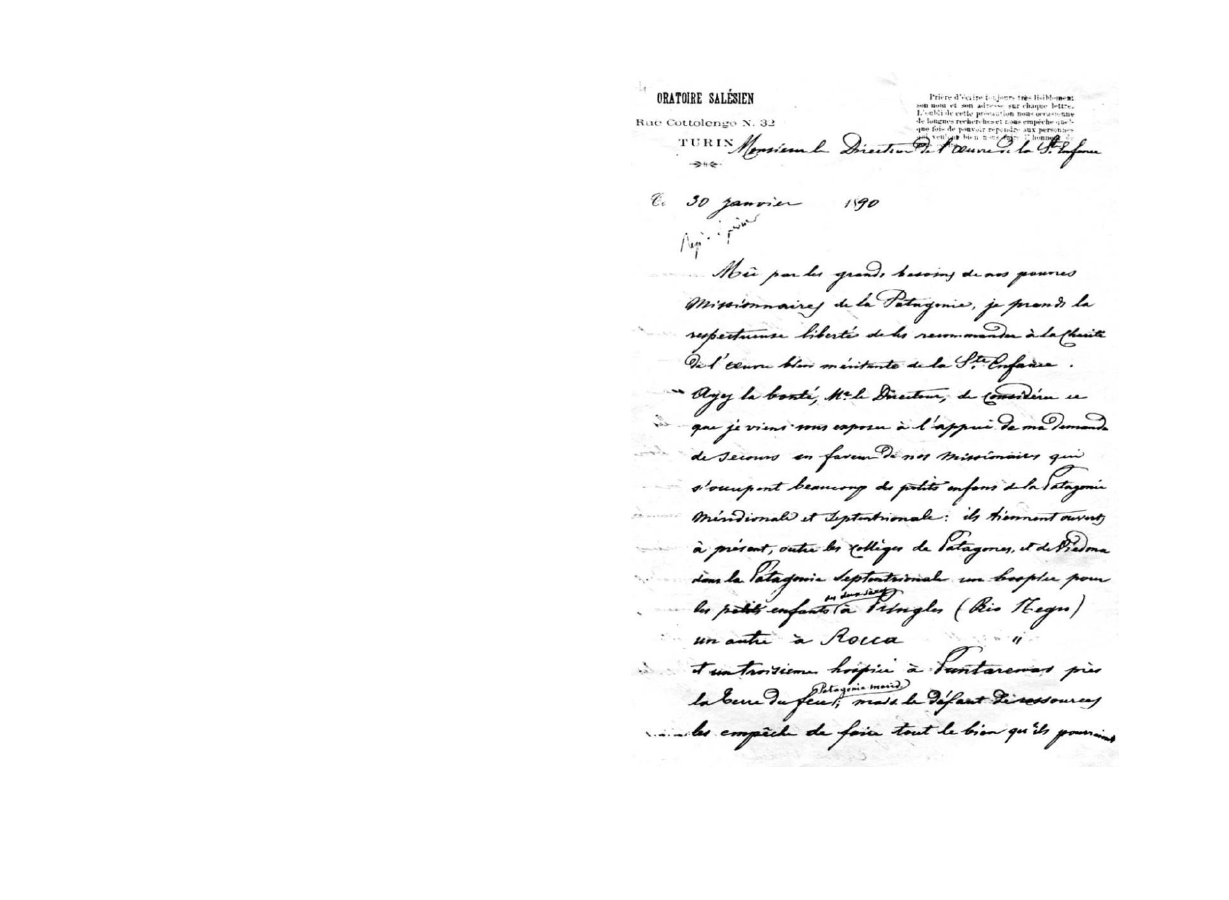 ORATOIRE SALÉSIEN
Rue Cottolengo N. 32
TURIN
Prière d'écrire toujours très lisiblement
son nom et son adresse sur chaque lettre.
L'oubli de cette précaution nous occasionne
de longues recherches et nous empêche quel-
que fois de pouvoir répondre aux personnes
qui veulent bien nous faire l'honneur
Monsieur le Directeur de l'Œuvre de la Ste Enfance
30 janvier 1890
Mû par les grands besoins de nos pauvres
Missionnaires de la Patagonie, je prends la
respectueuse liberté de les recommander à la Charité
de l'œuvre bien méritante de la Ste Enfance.
Ayez la bonté, Mr le Directeur, de considérer ce
que je viens vous exposer à l'appui de ma demande
de secours en faveur de nos missionaires qui
s'occupent beaucoup des petits enfans de la Patagonie
Méridionale et Septentrionale : ils tiennent ouverts
à présent, outre les collèges de Patagones, et de Viedma
dans la Patagonie Septentrionale un hospice pour
des deux sexes
les petits enfants à Pringles (Rio Negro)
un autre à Rocca "
et un troisieme hospice à Puntarenas près
Patagonie merid
la Terre du feu; mais le défaut de ressources
les empêche de faire tout le bien qu'ils pourraient